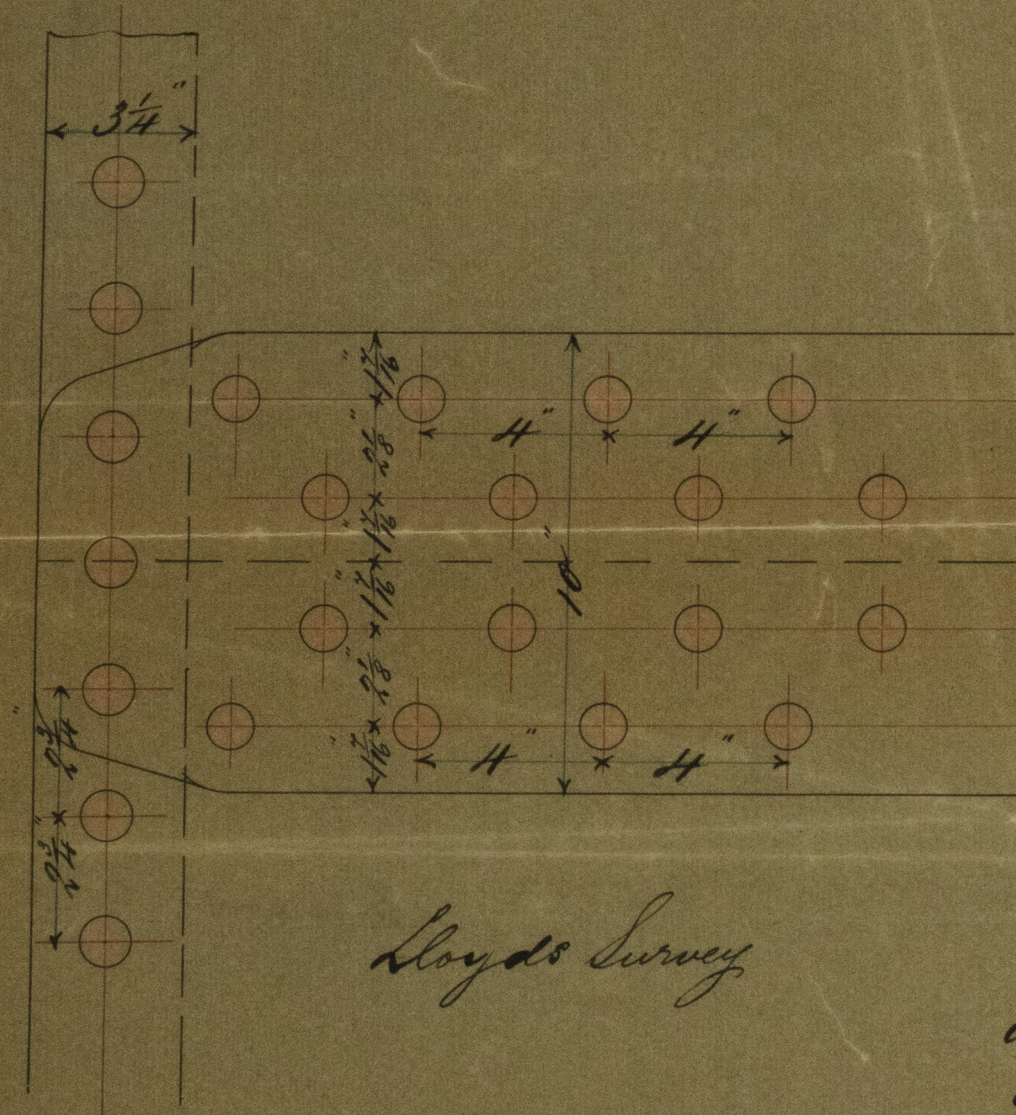 3 1/4"
1 7/16"
2 1/8"
1 7/16"
1 7/16"
2 1/8"
1 7/16"
4" 4"
10"
4" 4"
2 3/4"
2 3/4"
Lloyds Survey